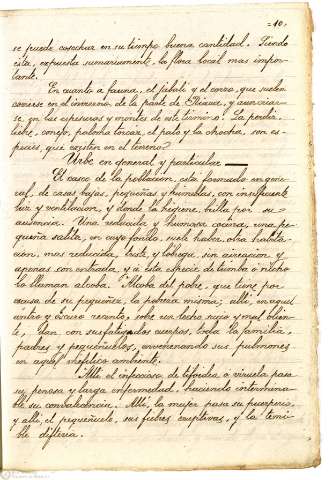 =10.=
se puede cosechar en su tiempo buena cantidad. Siendo
esta, expuesta sumariamente, la flora local mas impor-
tante.
En cuanto a fauna, el jabali y el corzo, que suelen
correrse en el invierno de la parte de
se, en las espesuras y montes de este término. La perdiz,
liebre, conejo, paloma torcaz, el pato y la chocha, son es-
pecies, que existen en el terreno.
Urbe en general y particular
El casco de la población, esta formado en gene-
ral, de casas bajas, pequeñas y humildes, con insuficiente
luz y ventilacion, y donde la higiene, brilla por su
ausencia. Una reducida y humosa cocina, una pe-
queña salita, en cuyo fondo, suele haber otra habita-
cion, mas reducida, triste y lóbrega, sin aireacion y
apenas con entrada, y á esta especie de tumba o nicho
la llaman alcoba. Alcoba del pobre, que tiene por
causa de su pequeñez, la pobreza misma; alli, en aquel
antro y oscuro recinto, sobre un lecho viejo y mal olien-
te, dan con sus fatigados cuerpos, toda la familia,
padres y pequeñuelos, envenenando sus pulmones
en aquel mefítico ambiente.
Alli el infeccioso, de tifoidea o viruela pasa
su penosa y larga enfermedad, haciendo intermina-
ble su convalecencia. Alli, la mujer pasa su puerperio,
y alli, el pequeñuelo, sus fiebres eruptivas, y la temi-
ble difteria.